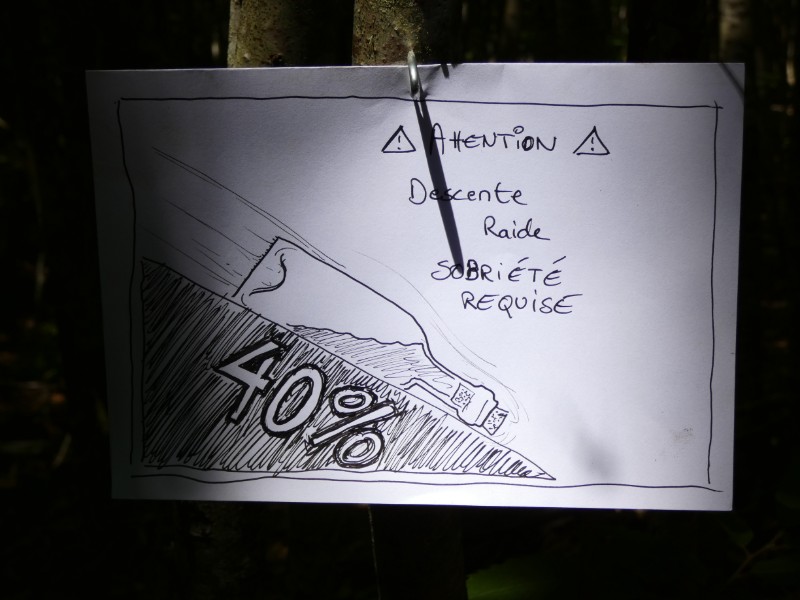 ATTENTION
Descente
Raide
SOBRIÉTÉ
REQUISE
40%